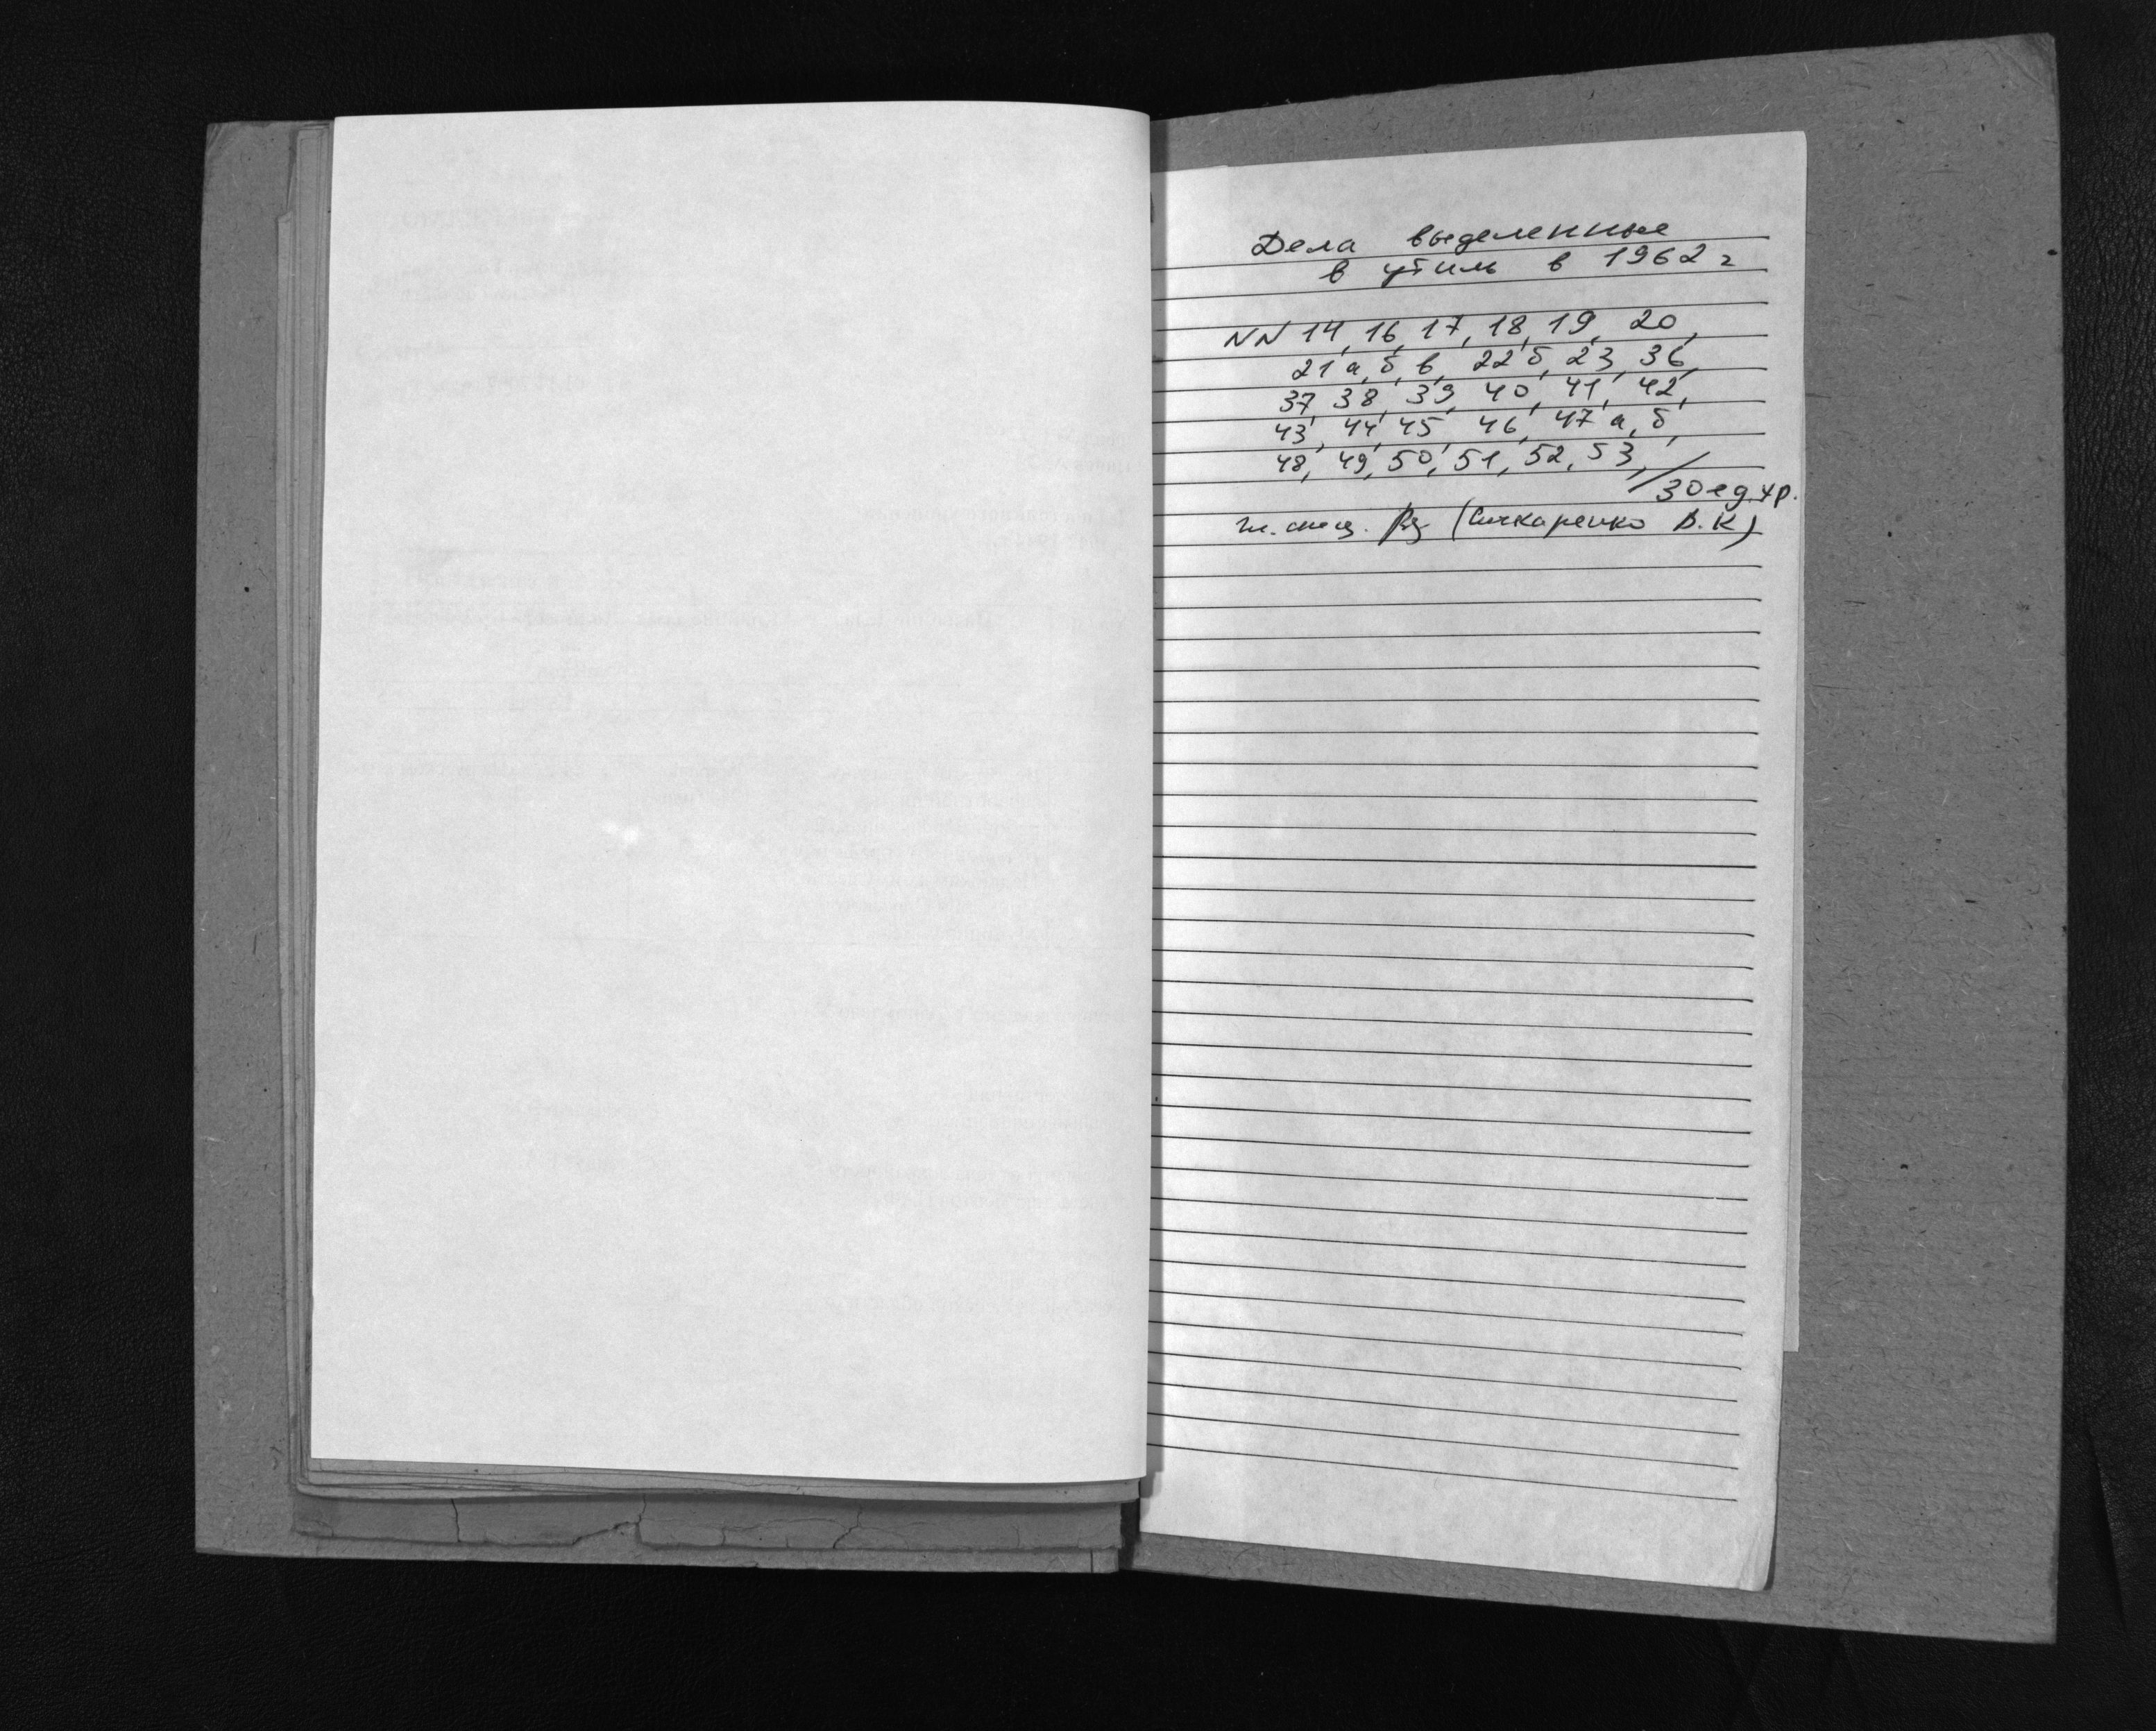 Дела выделенные
в утиль в 1962 г
NN 14, 16, 17, 18, 19, 20,
21 а, б, в, 22 б, 23, 36,
37, 38, 39, 40, 41, 42,
43, 44, 45, 46, 47 а, б,
48, 49, 50, 51, 52, 53, /
30 ед. хр.
спец. (Сичкаренко В.К)